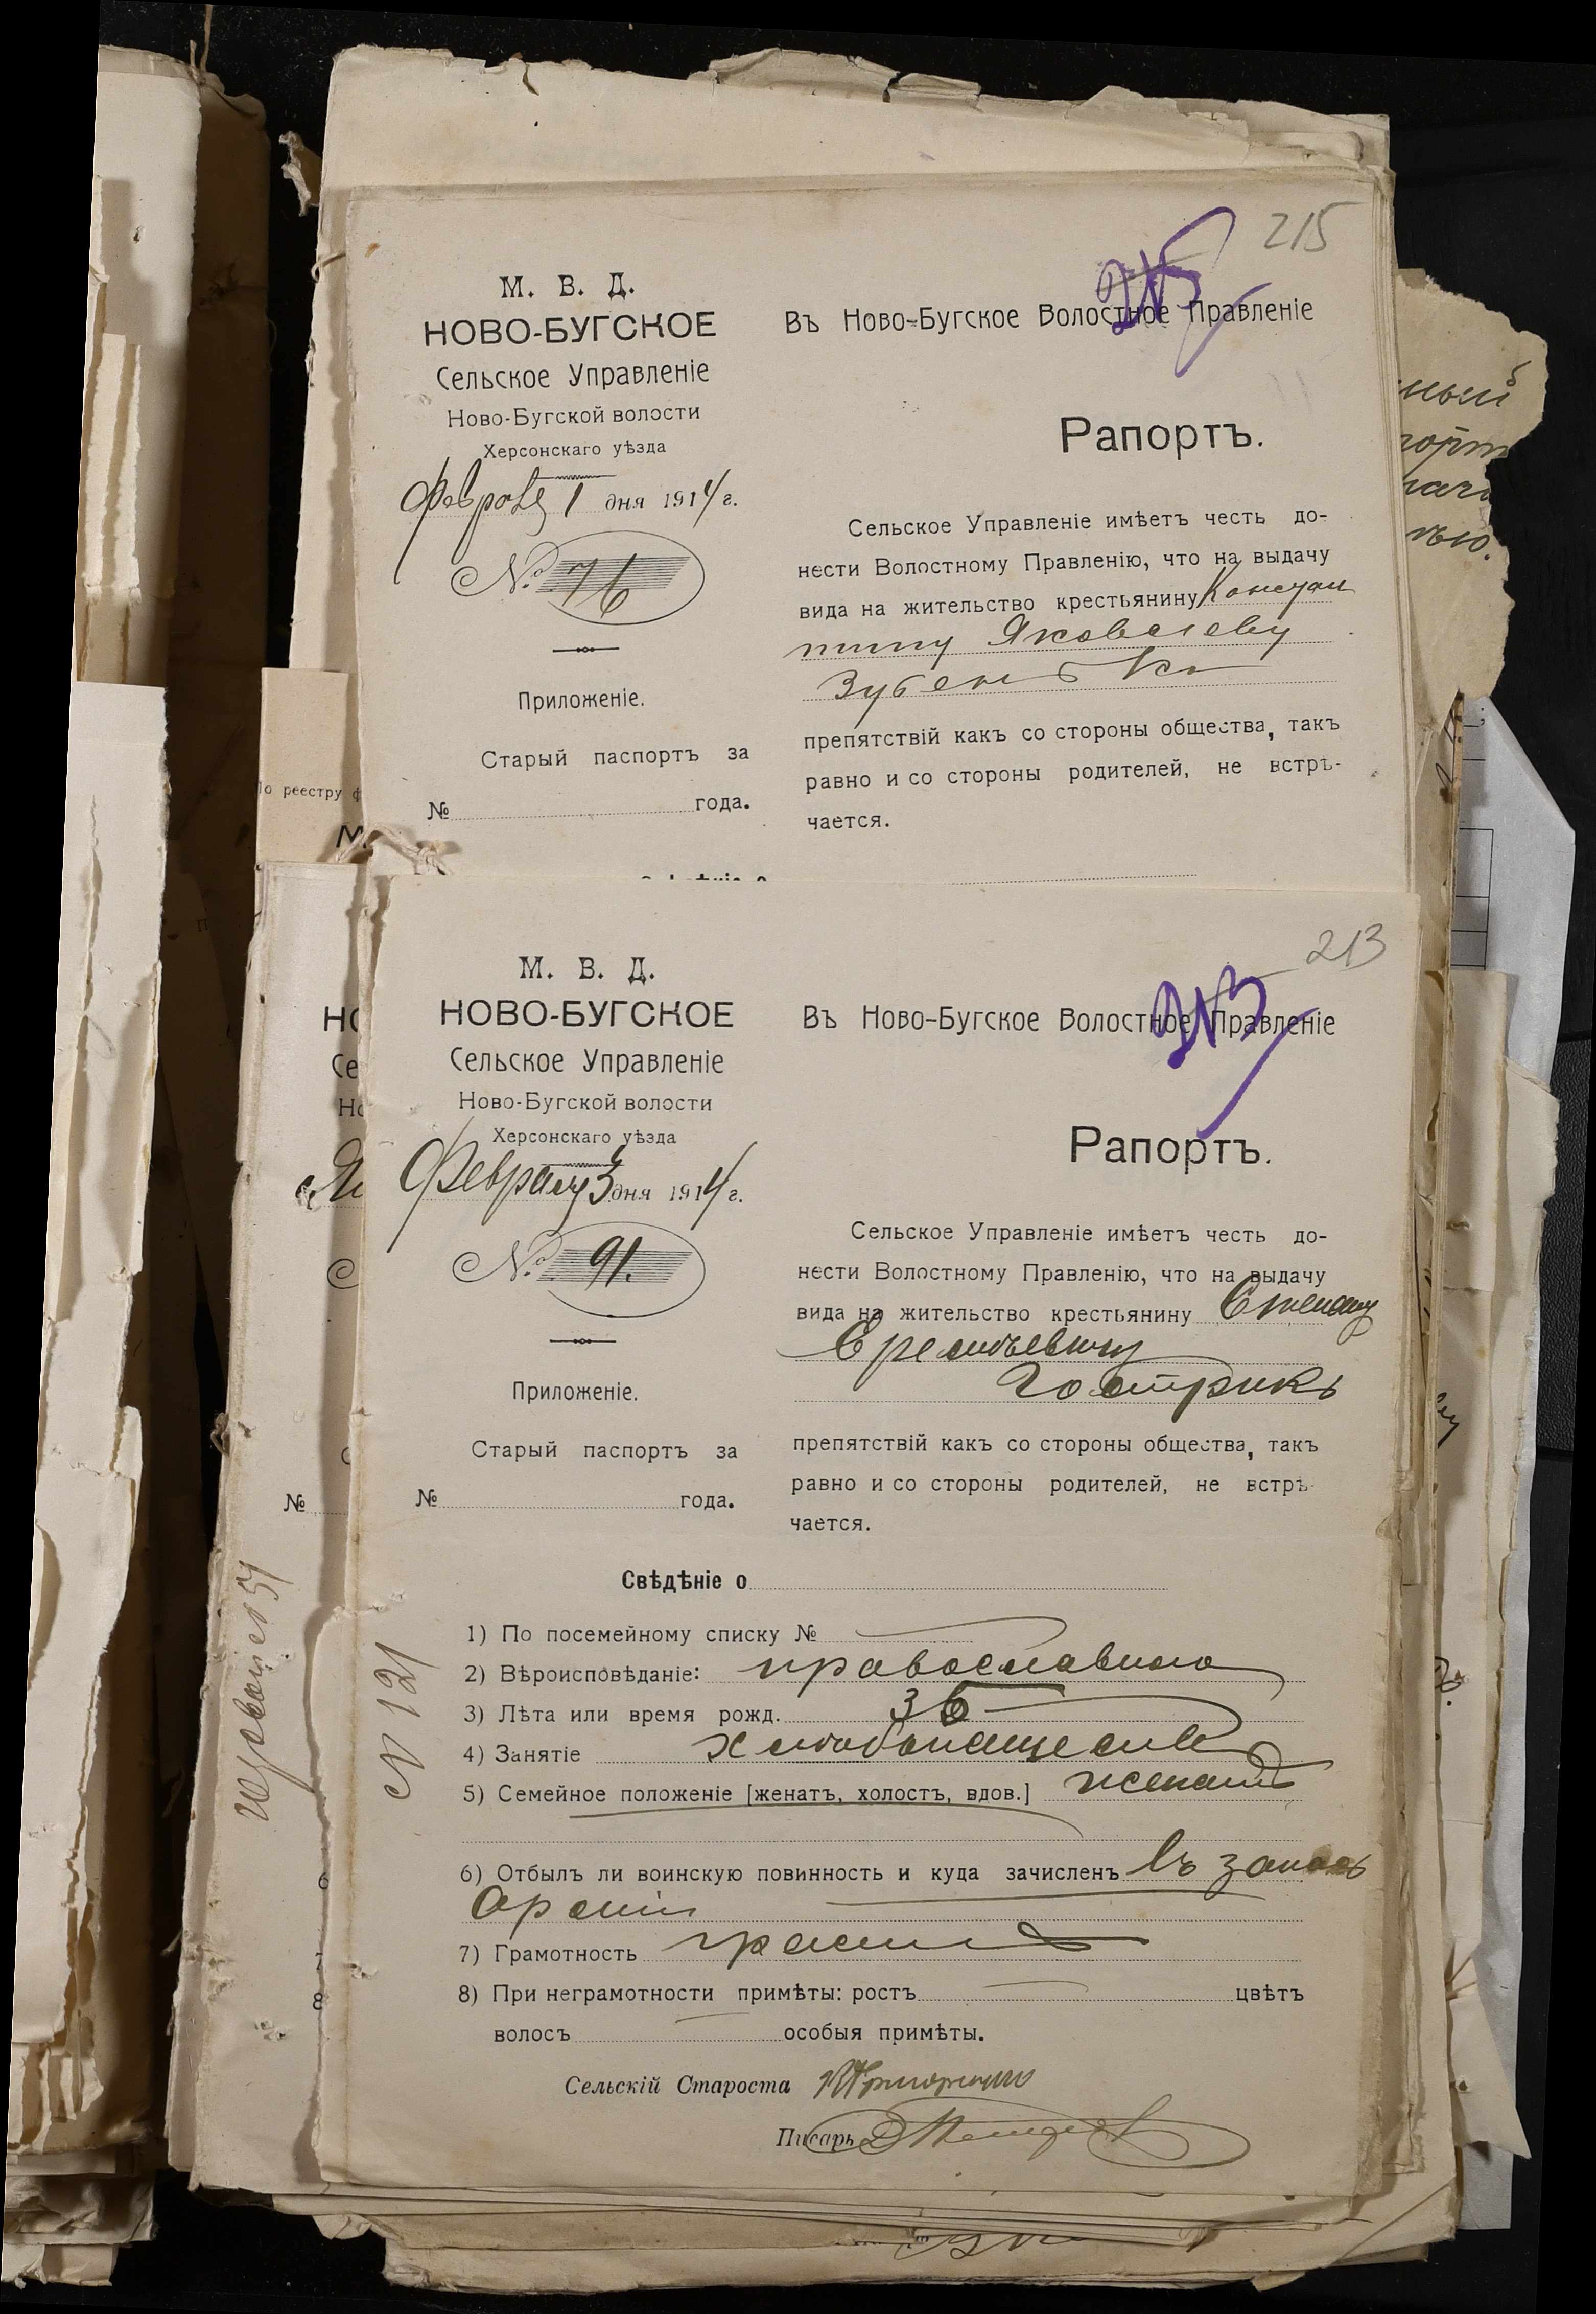 215
215
М. В. Д.
НОВО-БУГСКОЕ
Сельское Управленіе
Ново-Бугской волости
Херсонскаго уѣзда
Февраля 1 дня 1914 г.
№ 76
Приложеніе.
Старый паспортъ за
№ года.
Въ Ново-Бугское Волостное Правленіе
Рапортъ.
Сельское Управленіе имѣетъ честь до-
нести Волостному Правленію, что на выдачу
вида на жительство крестьянину Констан
тину Яковлеву
Зубенько
препятствій какъ со стороны общества, такъ
равно и со стороны родителей, не встрѣ-
чается.
213
213
М. В. Д.
НОВО-БУГСКОЕ
Сельское Управленіе
Ново-Бугской волости
Херсонскаго уѣзда
Февраля 3 дня 1914 г.
№ 91.
Приложеніе.
Старый паспортъ за
№ года.
Въ Ново-Бугское Волостное Правленіе
Рапортъ.
Сельское Управленіе имѣетъ честь до-
нести Волостному Правленію, что на выдачу
вида на жительство крестьянину Степану
Еремѣевичу
Гострикъ
препятствій какъ со стороны общества, такъ
равно и со стороны родителей, не встрѣ-
чается.
Свѣдѣніе о
1) По посемейному списку №
2) Вѣроисповѣданіе: православнаго
3) Лѣта или время рожд. 36
4) Занятіе хлѣбопашество
5) Семейное положеніе [женатъ, холостъ, вдов.] женатъ
6) Отбылъ ли воинскую повинность и куда зачисленъ въ запасъ
арміи
7) Грамотность
8) При неграмотности примѣты: ростъ цвѣтъ
волосъ особыя примѣты.
Сельскій Староста
Писарь
№ 121
По реестру